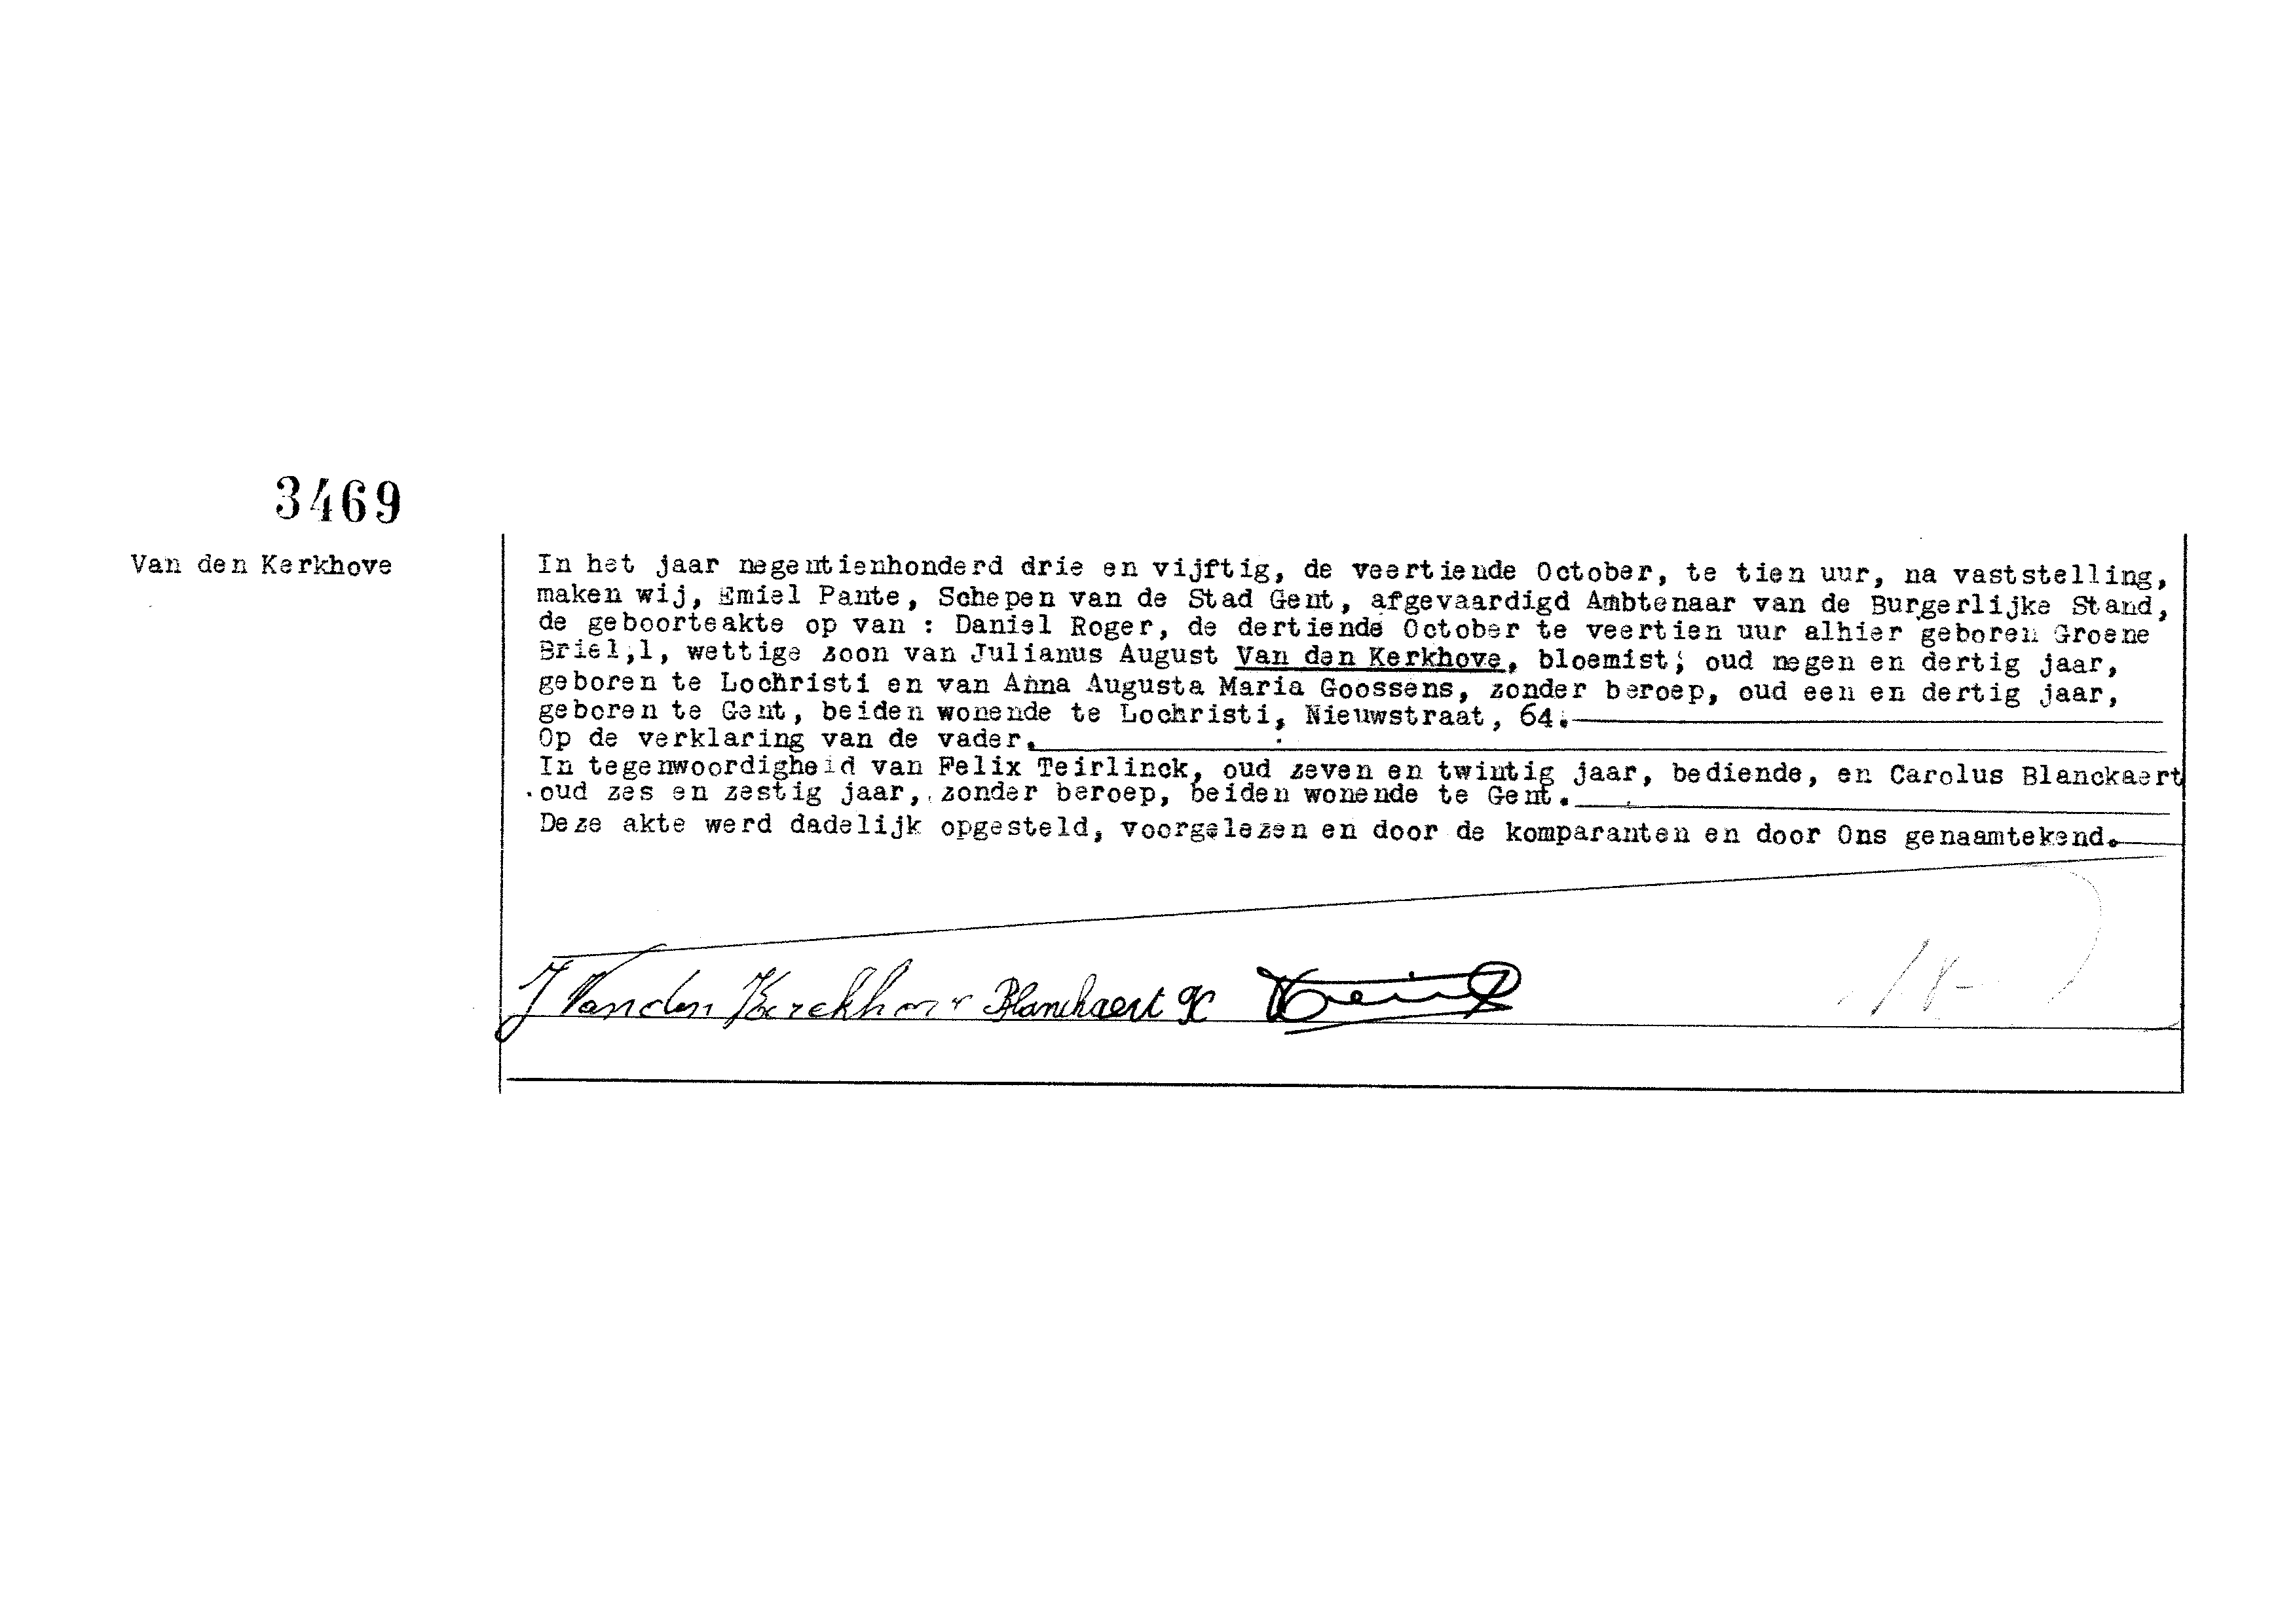 3469
Van den Kerkhove
In het jaar negentienhonderd drie en vijftig, de veertiende October, te tien uur, na vaststelling,
maken wij, Emiel Pante, Schepen van de Stad Gent, afgevaardigd Ambtenaar van de Burgerlijke Stand,
de geboorteakte op van : Daniel Roger, de dertiende October te veertien uur alhier geboren Groene
Briel,1, wettige zoon van Julianus August Van den Kerkhove, bloemist, oud negen en dertig jaar,
geboren te Lochristi en van Anna Augusta Maria Goossens, zonder beroep, oud een en dertig jaar,
geboren te Gent, beiden wonende te Lochristi, Nieuwstraat, 64.
Op de verklaring van de vader.
In tegenwoordigheid van Felix Teirlinck, oud zeven en twintig jaar, bediende, en Carolus Blanckaert
oud zes en zestig jaar, zonder beroep, beiden wonende te Gent.
Deze akte werd dadelijk opgesteld, voorgelezen en door de komparanten en door Ons genaamtekend.
J Vanden Kerckhove Blanckaert